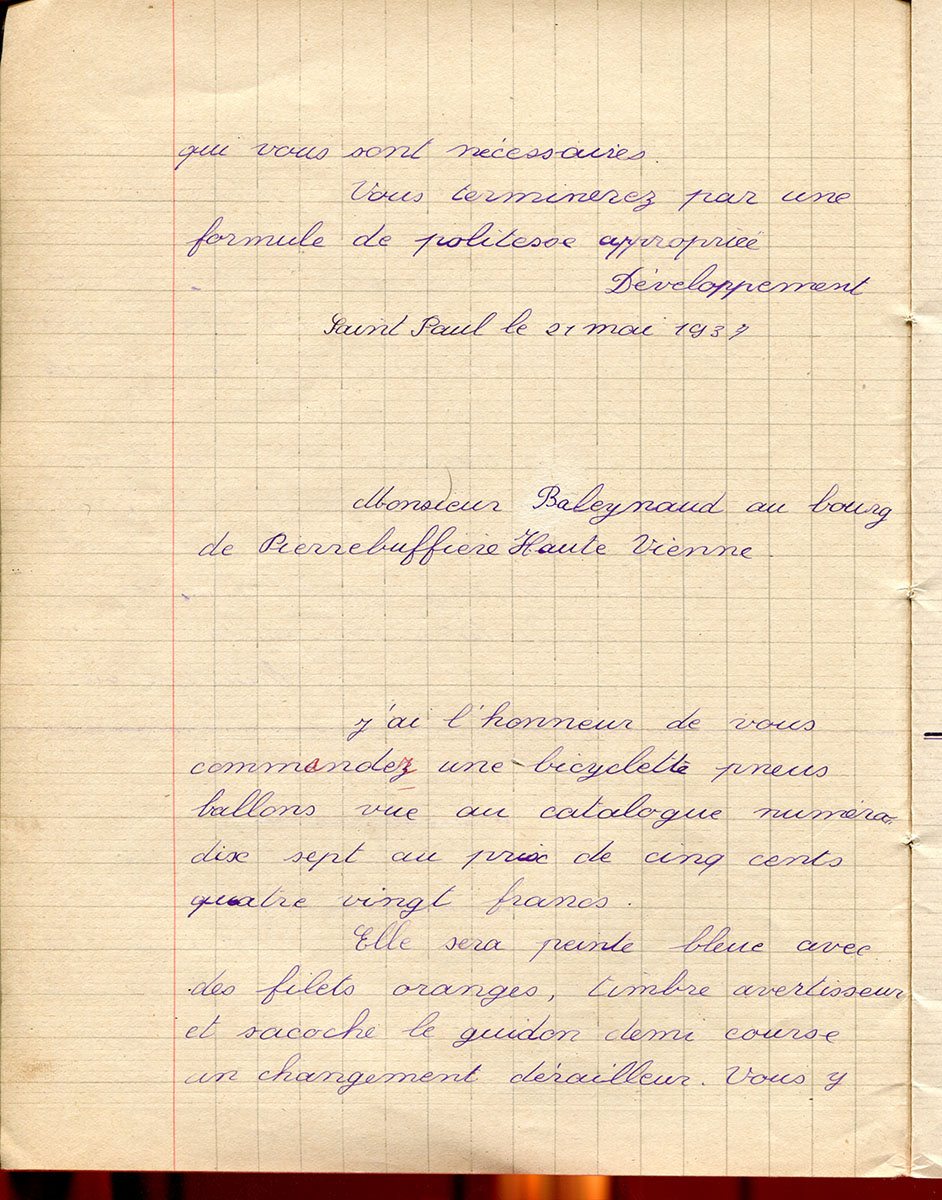 qui vous sont nécessaires.
Vous terminerez par une
formule de politesse appropriée
Développement
Saint Paul le 21 mai 1937
Monsieur Baleynaud au bourg
de Pierrebuffière Haute Vienne.
j'ai l'honneur de vous
commandez une bicyclette pneus
ballons vue au catalogue numéro
dix sept au prix de cinq cents
quatre vingt francs.
Elle sera peinte bleue avec
des filets oranges, timbre avertisseur
et sacoche le guidon demi course
un changement dérailleur. Vous y